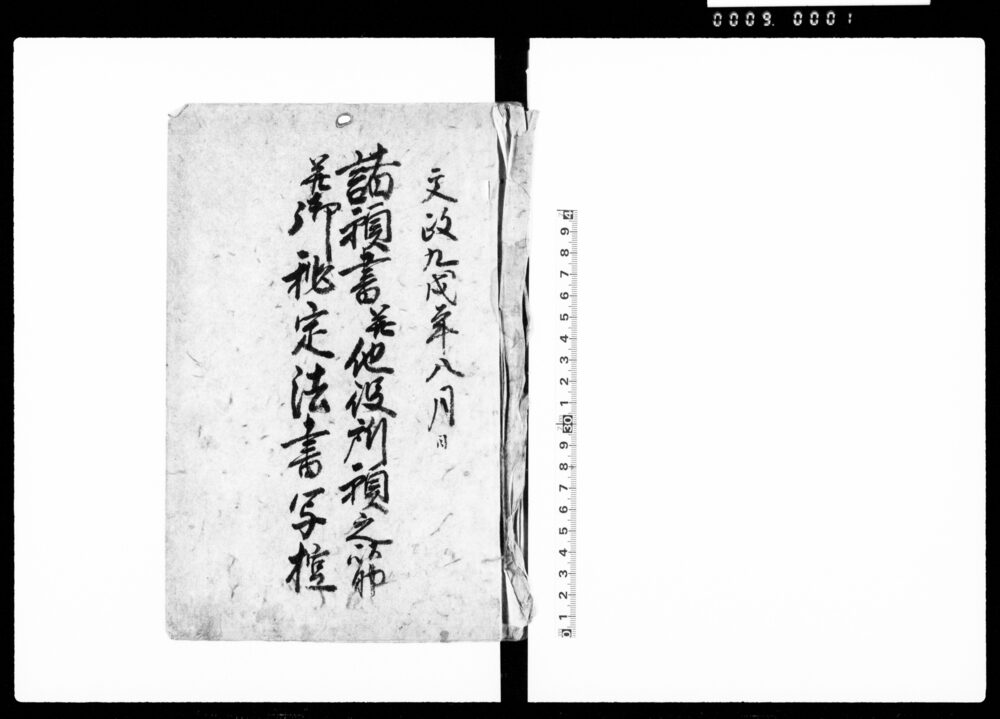 0009. 0001
文政九戌年八月日
諸願書并他役所願之節
并御秘定法書写控
4
9
8
7
6
5
4
3
2
1
30
9
8
7
6
5
4
3
2
1
0